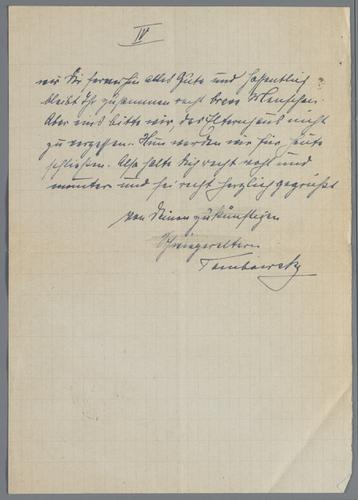 IV
wir Dir fernerhin alles Gute und hoffentlich
bleibt Ihr zusammen recht brave Menschen.
Aber eins bitte wir, das Elternhaus nicht
zu vergessen. Nun werden wir für heute
schließen. Also halte Dich recht wohl und
munter und sei recht herzlich gegrüßt
von Deinen zukünftigen
Schwiegereltern
Tombowsky